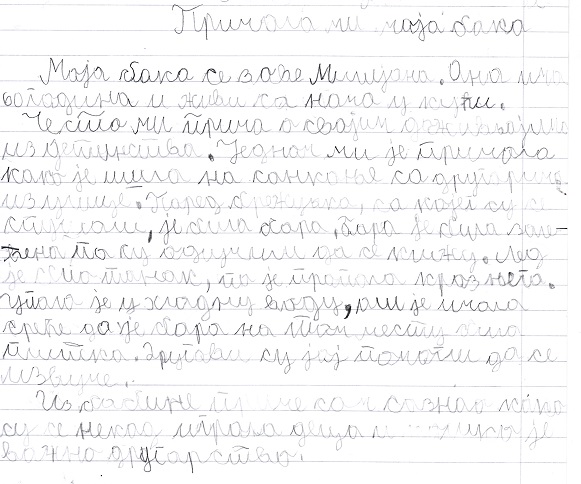 Причала ми моја бака
Моја бака се зове Милијана. Она има
година и живи са нама у кући.
Често ми прича о својим доживљајима
из детињства. Једном ми је причала
како је ишла на санкање са другарима
из улице. Поред брежуљка, са којег су се
спуштали, је била бара. Бара је била зале-
ђена па су одлучили да се клижу. Лед
је био танак, па је пропала кроз њега.
Упала је у хладну воду, али је имала
среће да је бара на том месту била
плитка. Другови су јој помогли да се
извуче.
Из бакине приче сам сазнао како
су се некад играла деца и колико је
важно другарство.